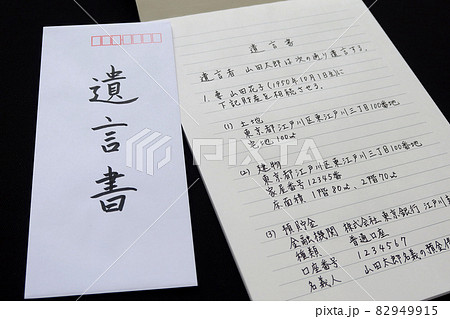 遺言書
遺言書
遺言者 山田太郎は次の通り遺言する。
1. 妻 山田花子(1950年10月1日生)に
下記財産を相続させる。
(1) 土地
東京都江戸川区東江戸川三丁目100番地
宅地 100㎡
(2) 建物
東京都江戸川区東江戸川三丁目100番地
家屋番号 12345番
床面積 1階80㎡、2階70㎡
(3) 預貯金
金融機関 株式会社 東京銀行 江戸川
種類 普通口座
口座番号 1234567
名義人 山田太郎名義の預金
PIXTA
pixta.jp - 82949915